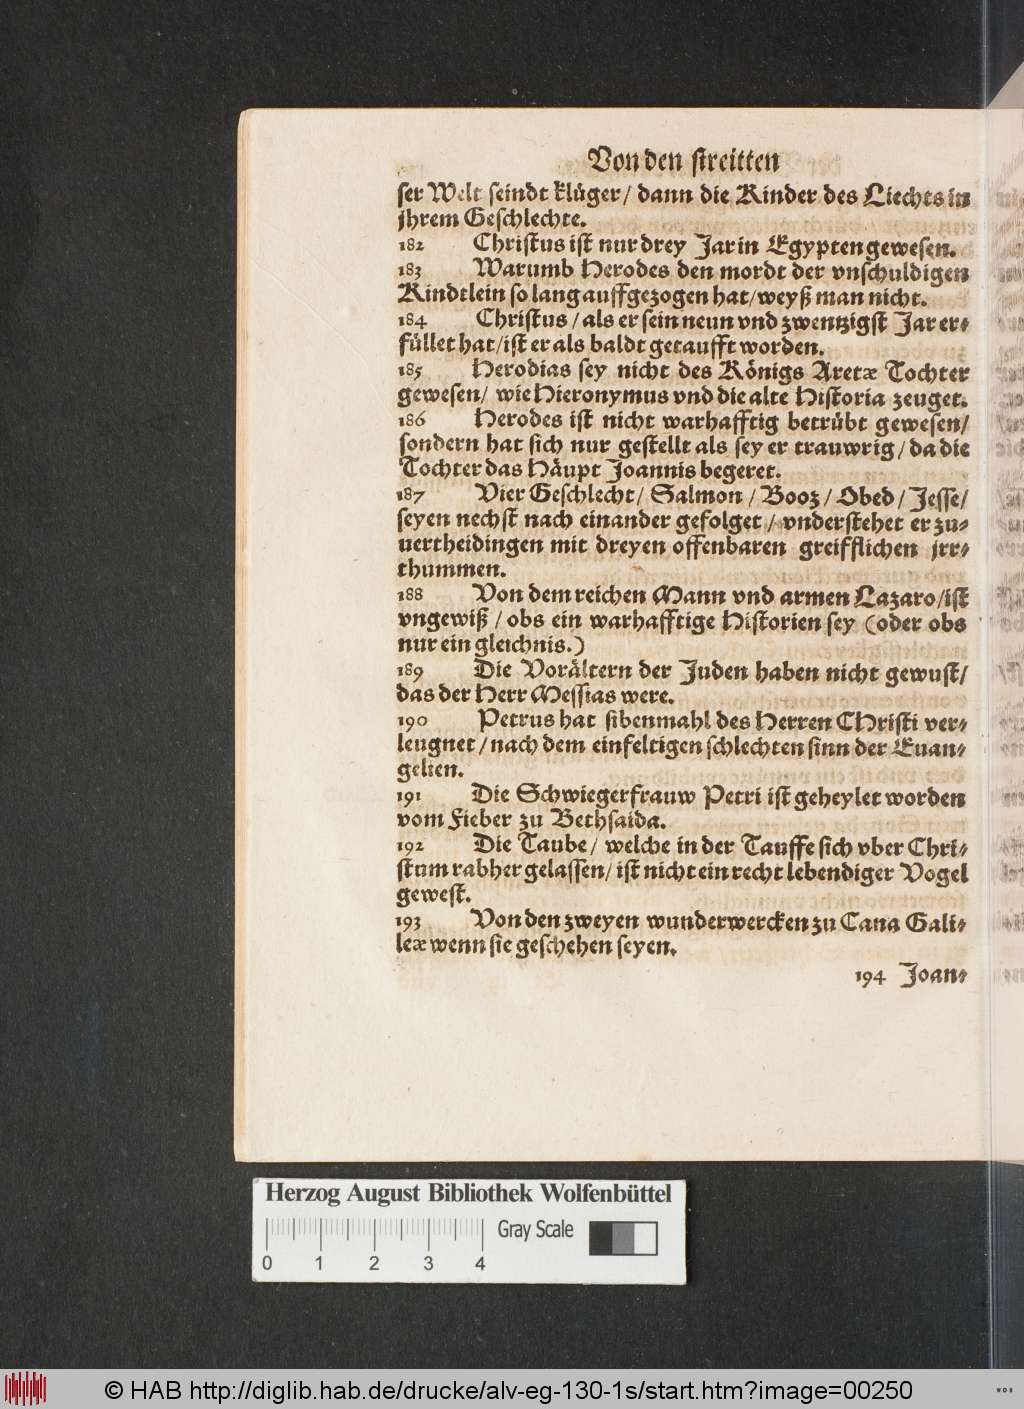 Von den streitten
ser Welt seindt klüger/ dann die Kinder des Liechts in
jhrem Geschlechte.
182 Christus ist nur drey Jar in Egypten gewesen.
183 Warumb Herodes den mordt der vnschuldigen
Kindtlein so lang auffgezogen hat/weyß man nicht.
184 Christus / als er sein neun vnd zwentzigst Jar er⸗
füllet hat/ist er als baldt getaufft worden.
185 Herodias sey nicht des Königs Aretæ Tochter
gewesen/ wie Hieronymus vnd die alte Historia zeuget.
186 Herodes ist nicht warhafftig betrübt gewesen/
sondern hat sich nur gestellt als sey er trauwrig / da die
Tochter das Häupt Joannis begeret.
187 Vier Geschlecht/ Salmon / Booz / Obed / Jesse/
seyen nechst nach einander gefolget / vnderstehet er zu⸗
uertheidingen mit dreyen offenbaren greifflichen jrr⸗
thummen.
188 Von dem reichen Mann vnd armen Lazaro/ist
vngewiß / obs ein warhafftige Historien sey (oder obs
nur ein gleichnis.)
189 Die Vorältern der Juden haben nicht gewust/
das der Herr Messias were.
190 Petrus hat sibenmahl des Herren CHristi ver⸗
leugnet / nach dem einfeltigen schlechten sinn der Euan⸗
gelien.
191 Die Schwiegerfrauw Petri ist geheylet worden
vom Fieber zu Bethsaida.
192 Die Taube/ welche in der Tauffe sich vber Chri⸗
stum rabher gelassen/ ist nicht ein recht lebendiger Vogel
gewest.
193 Von den zweyen wunderwercken zu Cana Gali⸗
leæ wenn sie geschehen seyen.
194 Joan⸗
Herzog August Bibliothek Wolfenbüttel
Gray Scale
0 1 2 3 4
© HAB http://diglib.hab.de/drucke/alv-eg-130-1s/start.htm?image=00250